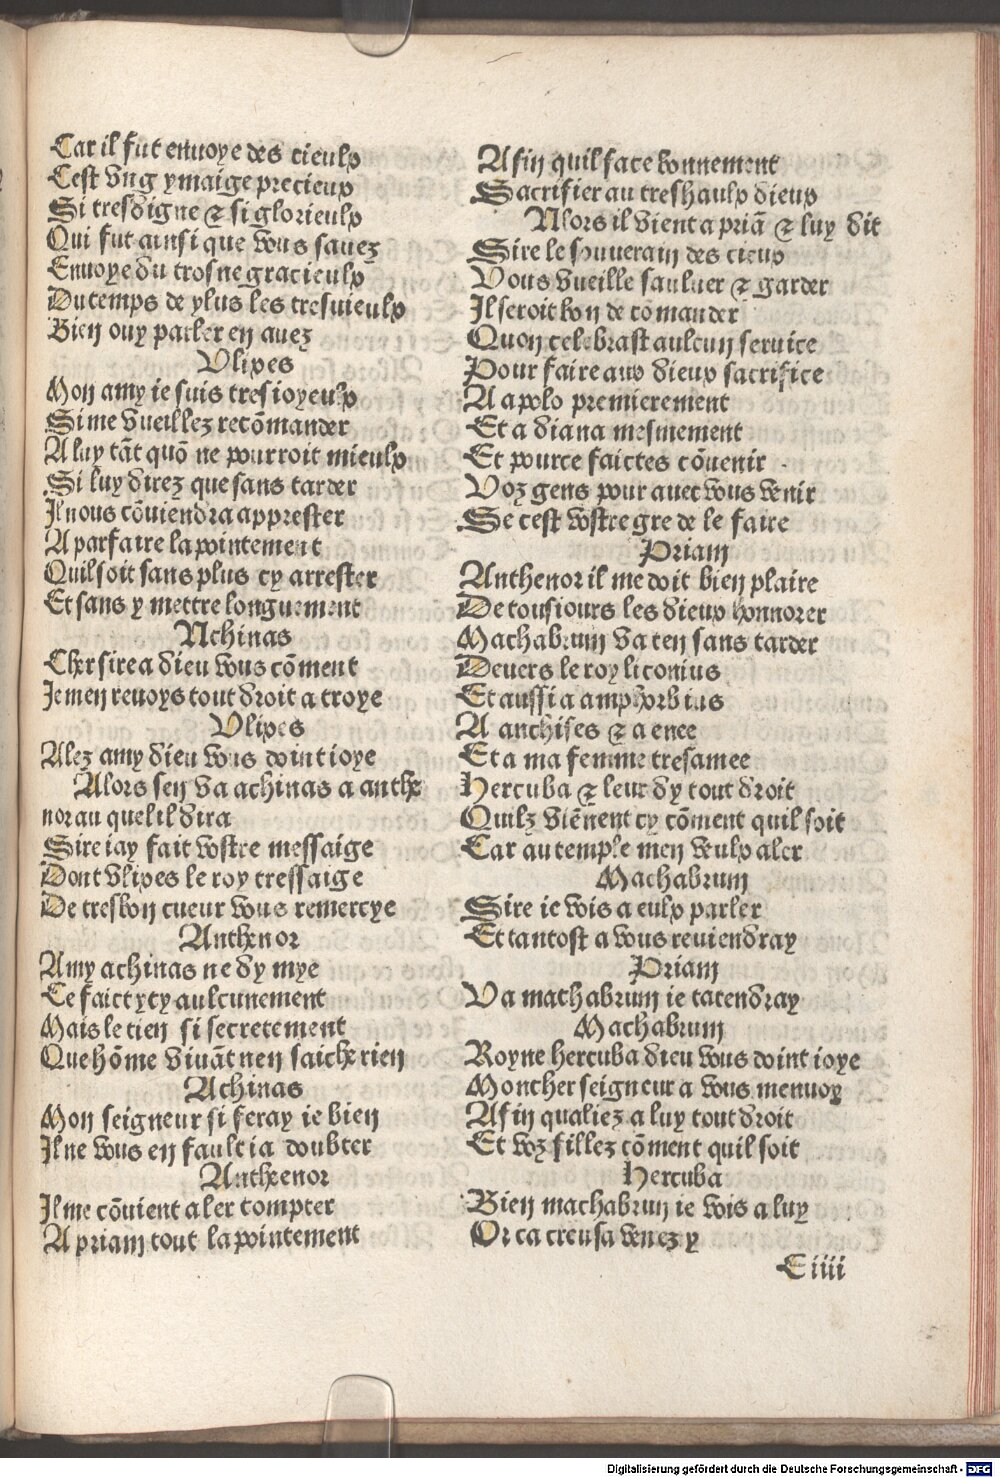 Car il fut enuoye des cieulx
Cest vng ymaige precieux
Si tresdigne & si glorieulx
Qui fut ainsi que vous sauez
Enuoye du trosne gracieulx
Du temps de ylus les tresuieulx
Bien ouy parler en auez
Vlixes
Mon amy ie suis tresioyeulx
Si me vueillez recõmander
A luy tãt quõ ne pourroit mieulx
Si luy direz que sans tarder
Il nous cõuiendra apprester
A parfaire lapointement
Quil soit sans plus cy arrester
Et sans y mettre longuement
Achinas
Cher sire a dieu vous cõment
Je men reuoys tout droit a troye
Vlixes
Alez amy dieu vous doint ioye
Alors sen va achinas a anthe
nor au quel il dira
Sire iay fait vostre messaige
Dont vlixes le roy tressaige
De tresbon cueur vous remercye
Anthenor
Amy achinas ne dy mye
Ce faict ycy aulcunement
Mais le tien si secretement
Que hõme viuãt nen saiche rien
Achinas
Mon seigneur si feray ie bien
Il ne vous en fault ia doubter
Antheenor
Il me cõuient aler compter
A priam tout lapointement
Afin quil face bonnement
Sacrifier au treshaulx dieux
Alors il vient a priã & luy dit
Sire le souuerain des cieux
Vous vueille sauluer & garder
Il seroit bon de cõmander
Quon celebrast aulcun seruice
Pour faire aux dieux sacrifice
A apolo premierement
Et a diana mesmement
Et pource faictes cõuenir
Voz gens pour auec vous venir
Se cest vostre gre de le faire
Priam
Anthenor il me doit bien plaire
De tousiours les dieux honnorer
Machabrum va ten sans tarder
Deuers le roy liconius
Et aussi a amphorbius
A anchises & a enee
Et a ma femme tresamee
Hercuba & leur dy tout droit
Quilz viẽnent cy cõment quil soit
Car au temple men veulx aler
Machabrum
Sire ie vois a eulx parler
Et tantost a vous reuiendray
Priam
Va machabrum ie tatendray
Machabrum
Royne hercuba dieu vous doint ioye
Mon cher seigneur a vous menuoy
Afin qualiez a luy tout droit
Et voz fillez cõment quil soit
Hercuba
Bien machabrun ie vois a luy
Or ca creusa venez y
E iiii
Digitalisierung gefördert durch die Deutsche Forschungsgemeinschaft - DFG